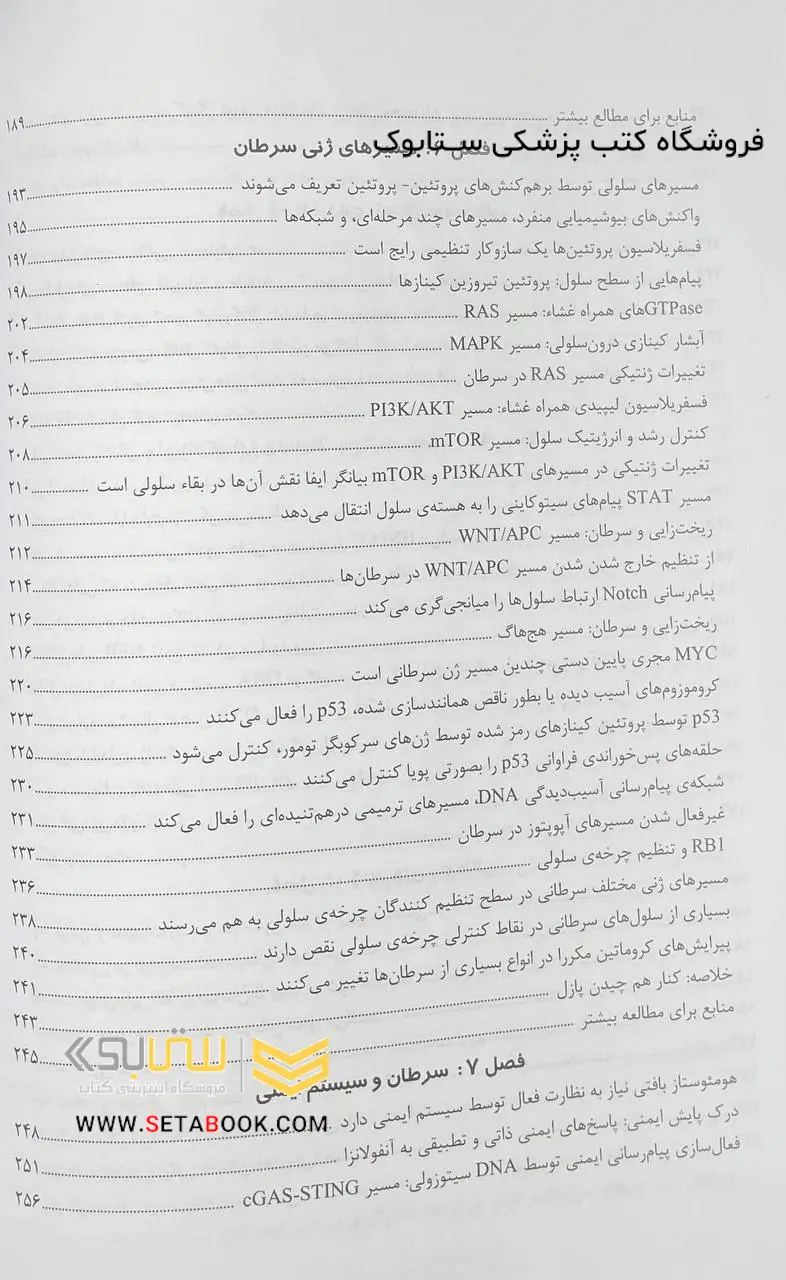 منابع برای مطالع بیشتر ۱۸۹
فروشگاه کتب پزشکی ستابوک
فصل ۶: مسیرهای ژنی سرطان
مسیرهای سلولی توسط برهم‌کنش‌های پروتئین- پروتئین تعریف می‌شوند ۱۹۳
واکنش‌های بیوشیمیایی منفرد، مسیرهای چند مرحله‌ای، و شبکه‌ها ۱۹۵
فسفریلاسیون پروتئین‌ها یک سازوکار تنظیمی رایج است ۱۹۷
پیام‌هایی از سطح سلول: پروتئین تیروزین کینازها ۱۹۸
GTPaseهای همراه غشاء: مسیر RAS ۲۰۲
آبشار کینازی درون‌سلولی: مسیر MAPK ۲۰۴
تغییرات ژنتیکی مسیر RAS در سرطان ۲۰۵
فسفریلاسیون لیپیدی همراه غشاء: مسیر PI3K/AKT ۲۰۶
کنترل رشد و انرژیتیک سلول: مسیر mTOR ۲۰۸
تغییرات ژنتیکی در مسیرهای PI3K/AKT و mTOR بیانگر ایفا نقش آن‌ها در بقاء سلولی است ۲۱۰
مسیر STAT پیام‌های سیتوکاینی را به هسته‌ی سلول انتقال می‌دهد ۲۱۱
ریخت‌زایی و سرطان: مسیر WNT/APC ۲۱۲
از تنظیم خارج شدن شدن مسیر WNT/APC در سرطان‌ها ۲۱۴
پیام‌رسانی Notch ارتباط سلول‌ها را میانجی‌گری می‌کند ۲۱۶
ریخت‌زایی و سرطان: مسیر هج‌هاگ ۲۱۶
MYC مجری پایین دستی چندین مسیر ژن سرطانی است ۲۲۰
کروموزوم‌های آسیب دیده یا بطور ناقص همانندسازی شده، p53 را فعال می‌کنند ۲۲۳
p53 توسط پروتئین کینازهای رمز شده توسط ژن‌های سرکوبگر تومور، کنترل می‌شود ۲۲۵
حلقه‌های پس‌خوراندی فراوانی p53 را بصورتی پویا کنترل می‌کنند ۲۳۰
شبکه‌ی پیام‌رسانی آسیب‌دیدگی DNA، مسیرهای ترمیمی درهم‌تنیده‌ای را فعال می‌کند ۲۳۱
غیرفعال شدن مسیرهای آپوپتوز در سرطان ۲۳۳
RB1 و تنظیم چرخه‌ی سلولی ۲۳۶
مسیرهای ژنی مختلف سرطانی در سطح تنظیم کنندگان چرخه‌ی سلولی به هم می‌رسند ۲۳۸
بسیاری از سلول‌های سرطانی در نقاط کنترلی چرخه‌ی سلولی نقص دارند ۲۴۰
پیرایش‌های کروماتین مکررا در انواع بسیاری از سرطان‌ها تغییر می‌کنند ۲۴۱
خلاصه: کنار هم چیدن پازل ۲۴۳
منابع برای مطالعه بیشتر ۲۴۵
ستابوک
فروشگاه اینترنتی کتاب
فصل ۷: سرطان و سیستم ایمنی
WWW.SETABOOK.COM
هومئوستاز بافتی نیاز به نظارت فعال توسط سیستم ایمنی دارد ۲۴۸
درک پایش ایمنی: پاسخ‌های ایمنی ذاتی و تطبیقی به آنفولانزا ۲۵۱
فعال‌سازی پیام‌رسانی ایمنی توسط DNA سیتوزولی: مسیر cGAS-STING ۲۵۶